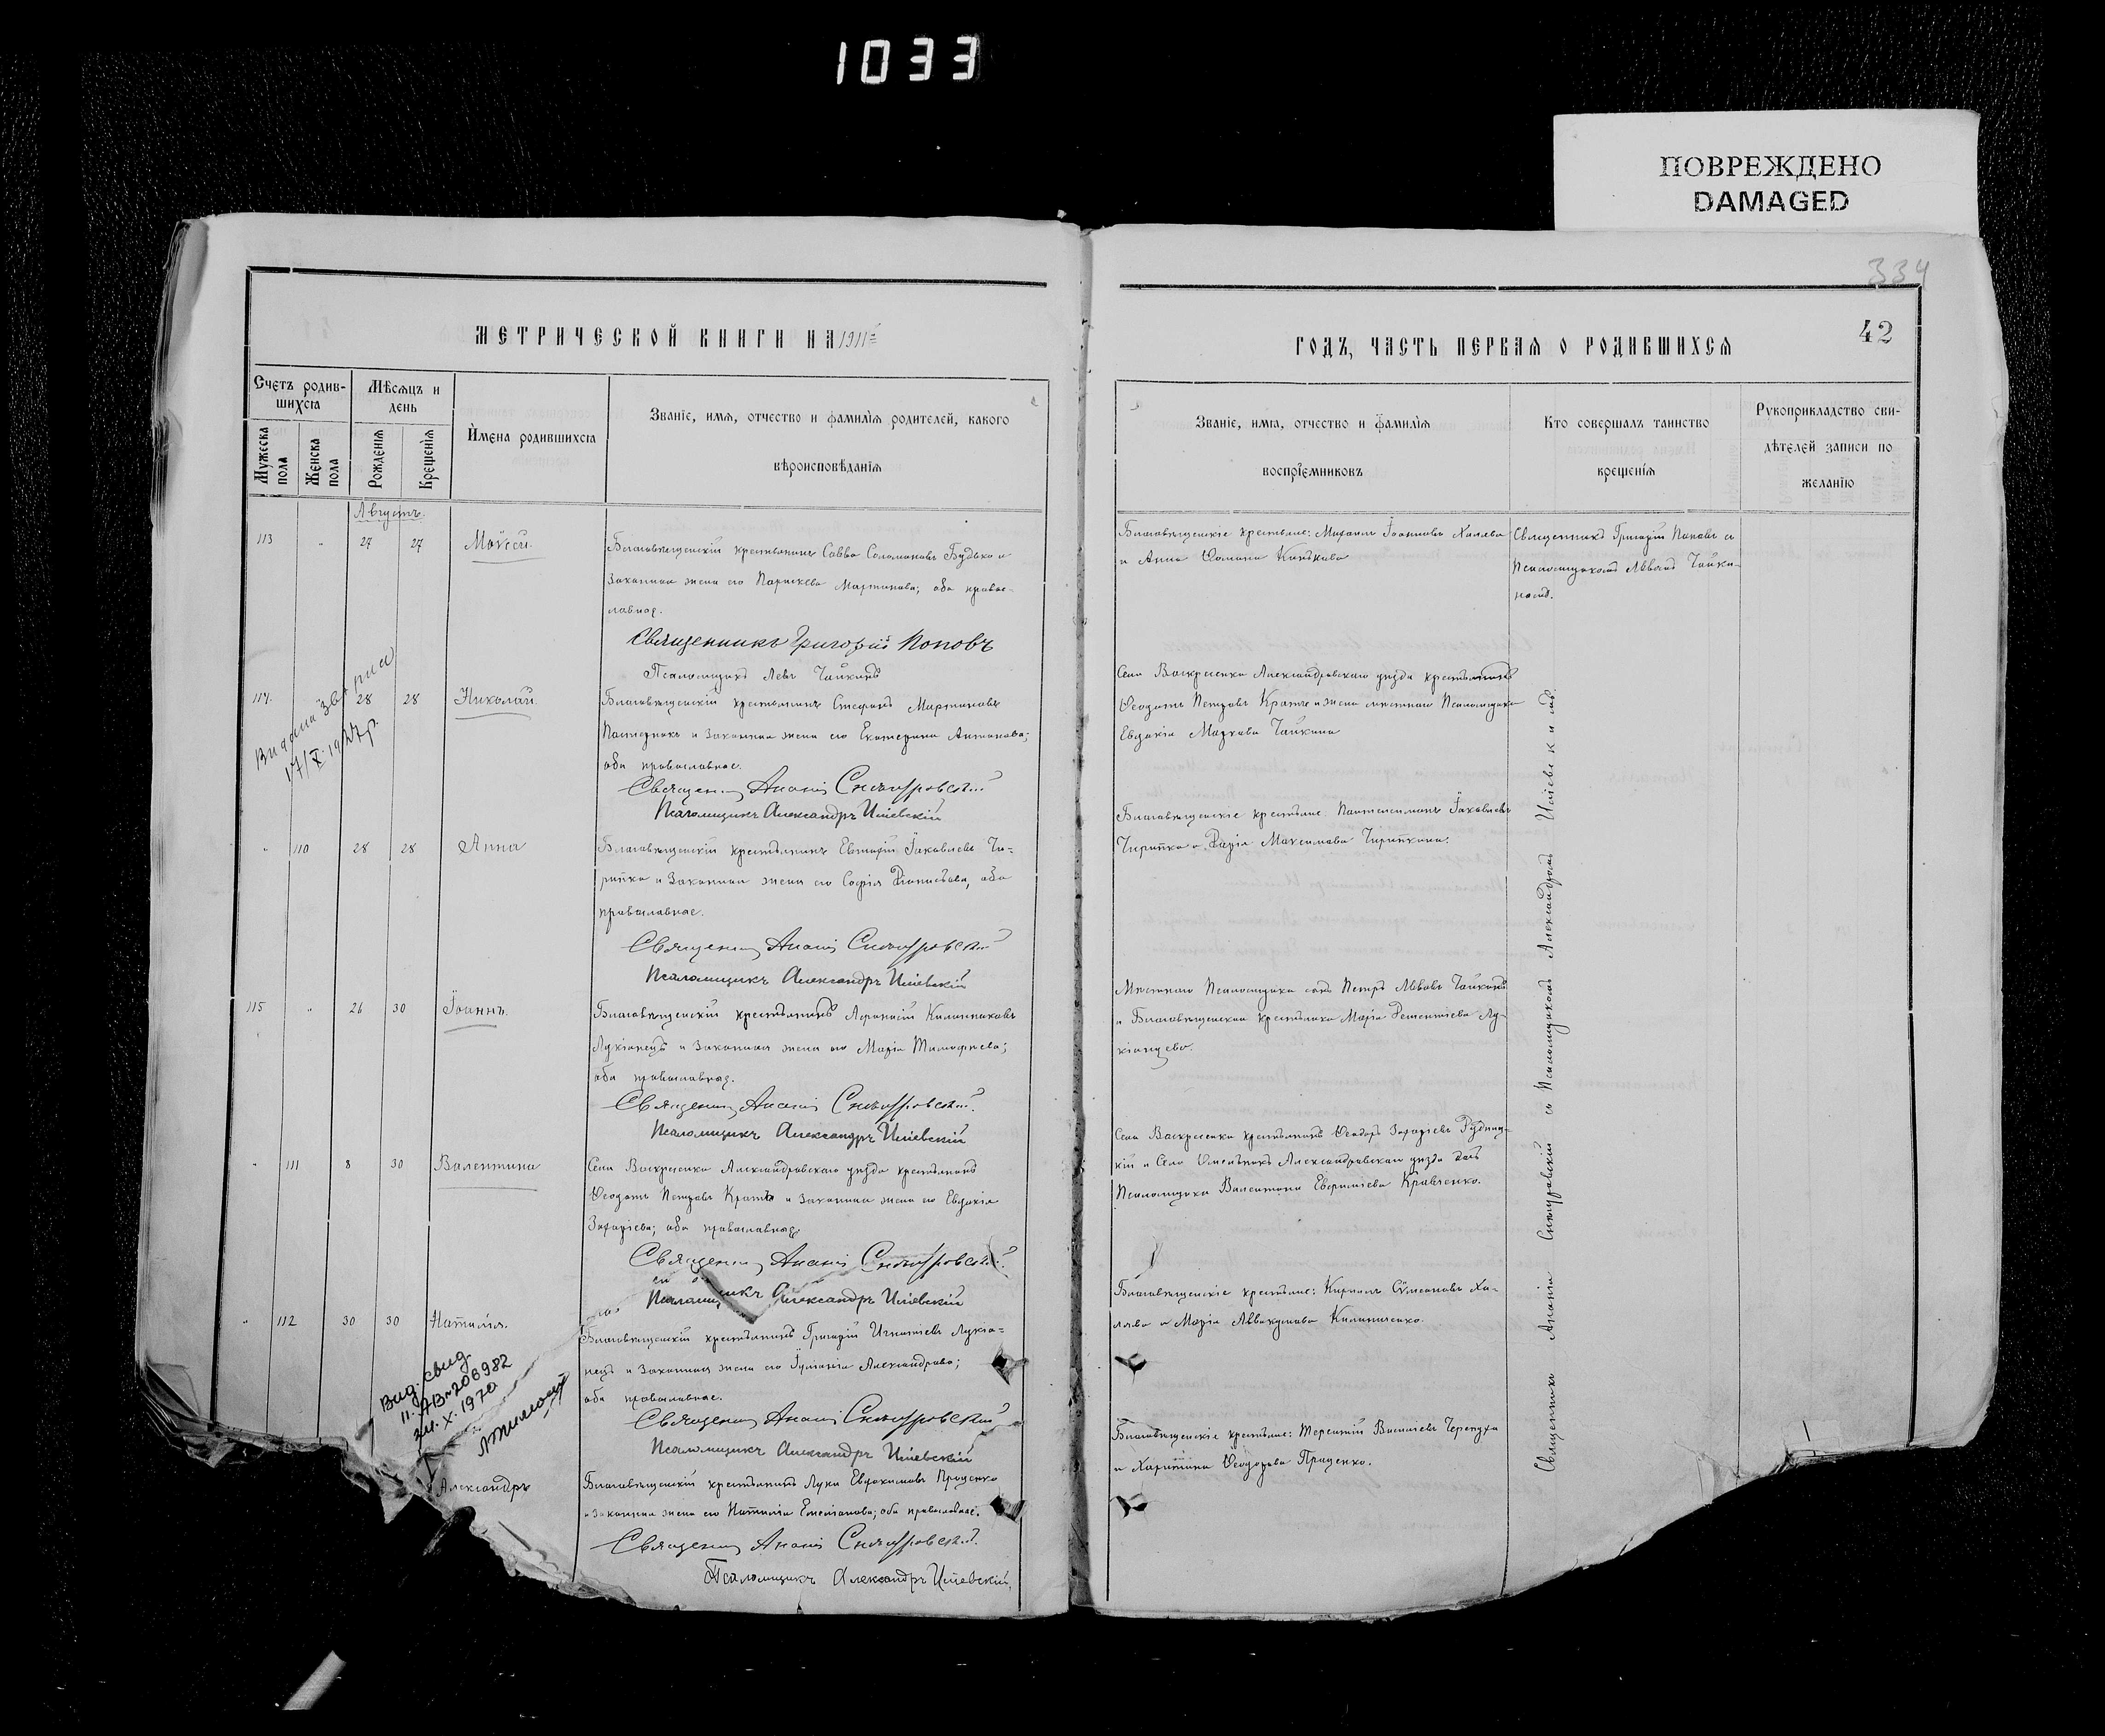 1033
ПОВРЕЖДЕНО
DAMAGED
334
МЕТРИЧЕСКОЙ КНИГИ НА 1911
ГОДЪ, ЧАСТЬ ПЕРВАЯ О РОДИВШИХСЯ
42
Счетъ родив-
шихся
Мужеска пола
Женска пола
Мѣсяцъ и
день
Рожденія
Крещенія
Имена родившихся
Званіе, имя, отчество и фамилія родителей, какого
вѣроисповѣданія
Званіе, имя, отчество и фамилія
воспріемниковъ
Кто совершалъ таинство
крещенія
Рукоприкладство сви-
дѣтелей записи по
желанію
Августъ.
113 " 27 27 Моѵсей.
Благовѣщенскій крестьянинъ Савва Соломоновъ Будько и
законная жена его Параскева Мартинова; оба правос-
лавные.
Священникъ Григорій Поповъ
Псаломщикъ Левъ Чайкинъ
Благовѣщенскіе крестьяне: Михаилъ Іоанновъ Халява
и Анна
Священникъ Григорій Поповъ съ
Псаломщикомъ Львомъ Чайки-
нымъ.
114. 28 28 Николай.
17/X. 1927 р.
Благовѣщенскій крестьянинъ Стефанъ Мартиновъ
Пастернакъ и законная жена его Екатерина Антонова;
оба православные.
Священникъ Ананій Снѣгуровскій
Псаломщикъ Александръ Иліевскій
Села Воскресенки Александровскаго уѣзда крестьянинъ
Ѳеодотъ Петровъ Кратъ и жена мѣстнаго Псаломщика
Евдокія Маркова Чайкина
" 110 28 28 Анна
Благовѣщенскій крестьянинъ Евтихій Іаковлевъ Чи-
рипка и законная жена его Софія Діонисіева, оба
православные.
Священникъ Ананій Снѣгуровскій
Псаломщикъ Александръ Иліевскій
Благовѣщенскіе крестьяне Пантелеимонъ Іаковлевъ
Чирипка и Дарія Максимова Чирипкина.
115 " 26 30 Іоаннъ.
Благовѣщенскій крестьянинъ Афанасій Каллиниковъ
Лукіанецъ и законная жена его Марія Тимофеева;
оба православные.
Священникъ Ананій Снѣгуровскій
Псаломщикъ Александръ Иліевскій
Мѣстнаго Псаломщика сынъ Петръ Львовъ Чайкинъ
и Благовѣщенская крестьянка Марія Дементіева Лу-
кіанцева.
" 111 8 30 Валентина
Села Воскресенки Александровскаго уѣзда крестьянинъ
Ѳеодотъ Петровъ Кратъ и законная жена его Евдокія
Захаріева; оба православные
Священникъ Ананій Снѣгуровскій
Псаломщикъ Александръ Иліевскій
Села Воскресенки крестьянинъ Ѳеодоръ Захаріевъ Рудниц-
кій и Села Омельникъ Александровскаго уѣзда дочь
Псаломщика Валентина Евфиміева Кравченко.
" 112 30 30 Наталія.
Вид. свид.
II-АВ №206982
1970
Благовѣщенскій крестьянинъ Григорій Игнатіевъ Лукіа-
нецъ и законная жена его Іуліанія Александрова;
оба православные.
Священникъ Ананій Снѣгуровскій
Псаломщикъ Александръ Иліевскій
Благовѣщенскіе крестьяне: Кириллъ Сѵмеоновъ Ха-
лява и Марія Аввакумова Калиниченко.
Александръ
Благовѣщенскій крестьянинъ Лука Евдокимовъ Проценко
и законная жена его Наталія Емеліанова; оба православные.
Священникъ Ананій Снѣгуровскій
Псаломщикъ Александръ Иліевскій,
Благовѣщенскіе крестьяне: Терентій Василіевъ Черепуха
и Харитина Ѳеодорова Проценко.
Священникъ Ананій Снѣгуровскій съ Псаломщикомъ Александромъ Иліевскимъ